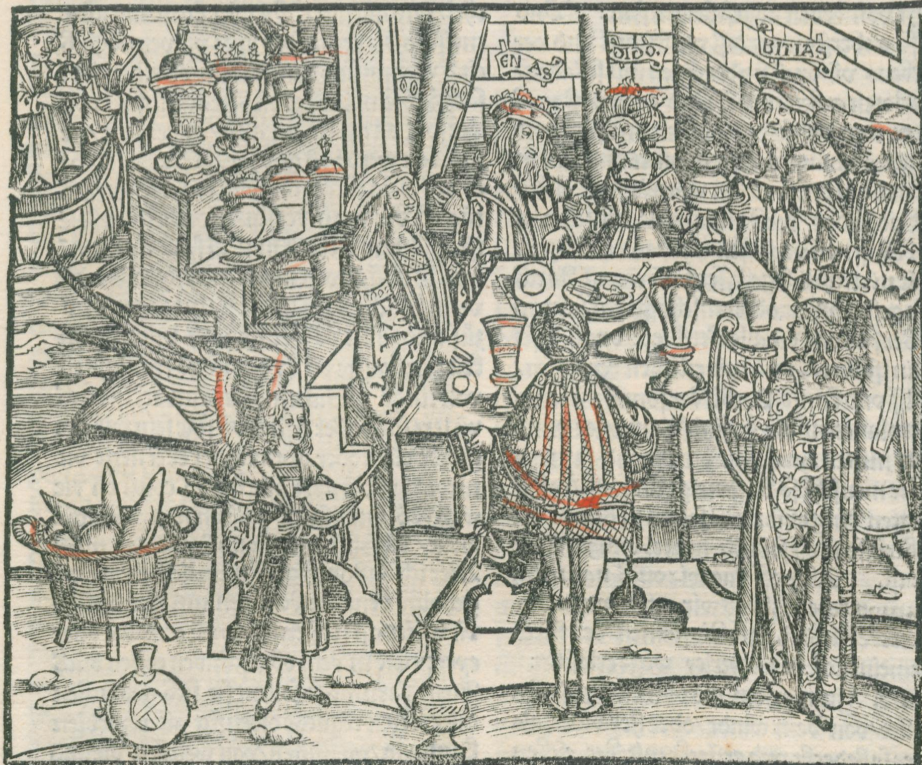 EN AS
DIDO
BITIAS
IOPAS